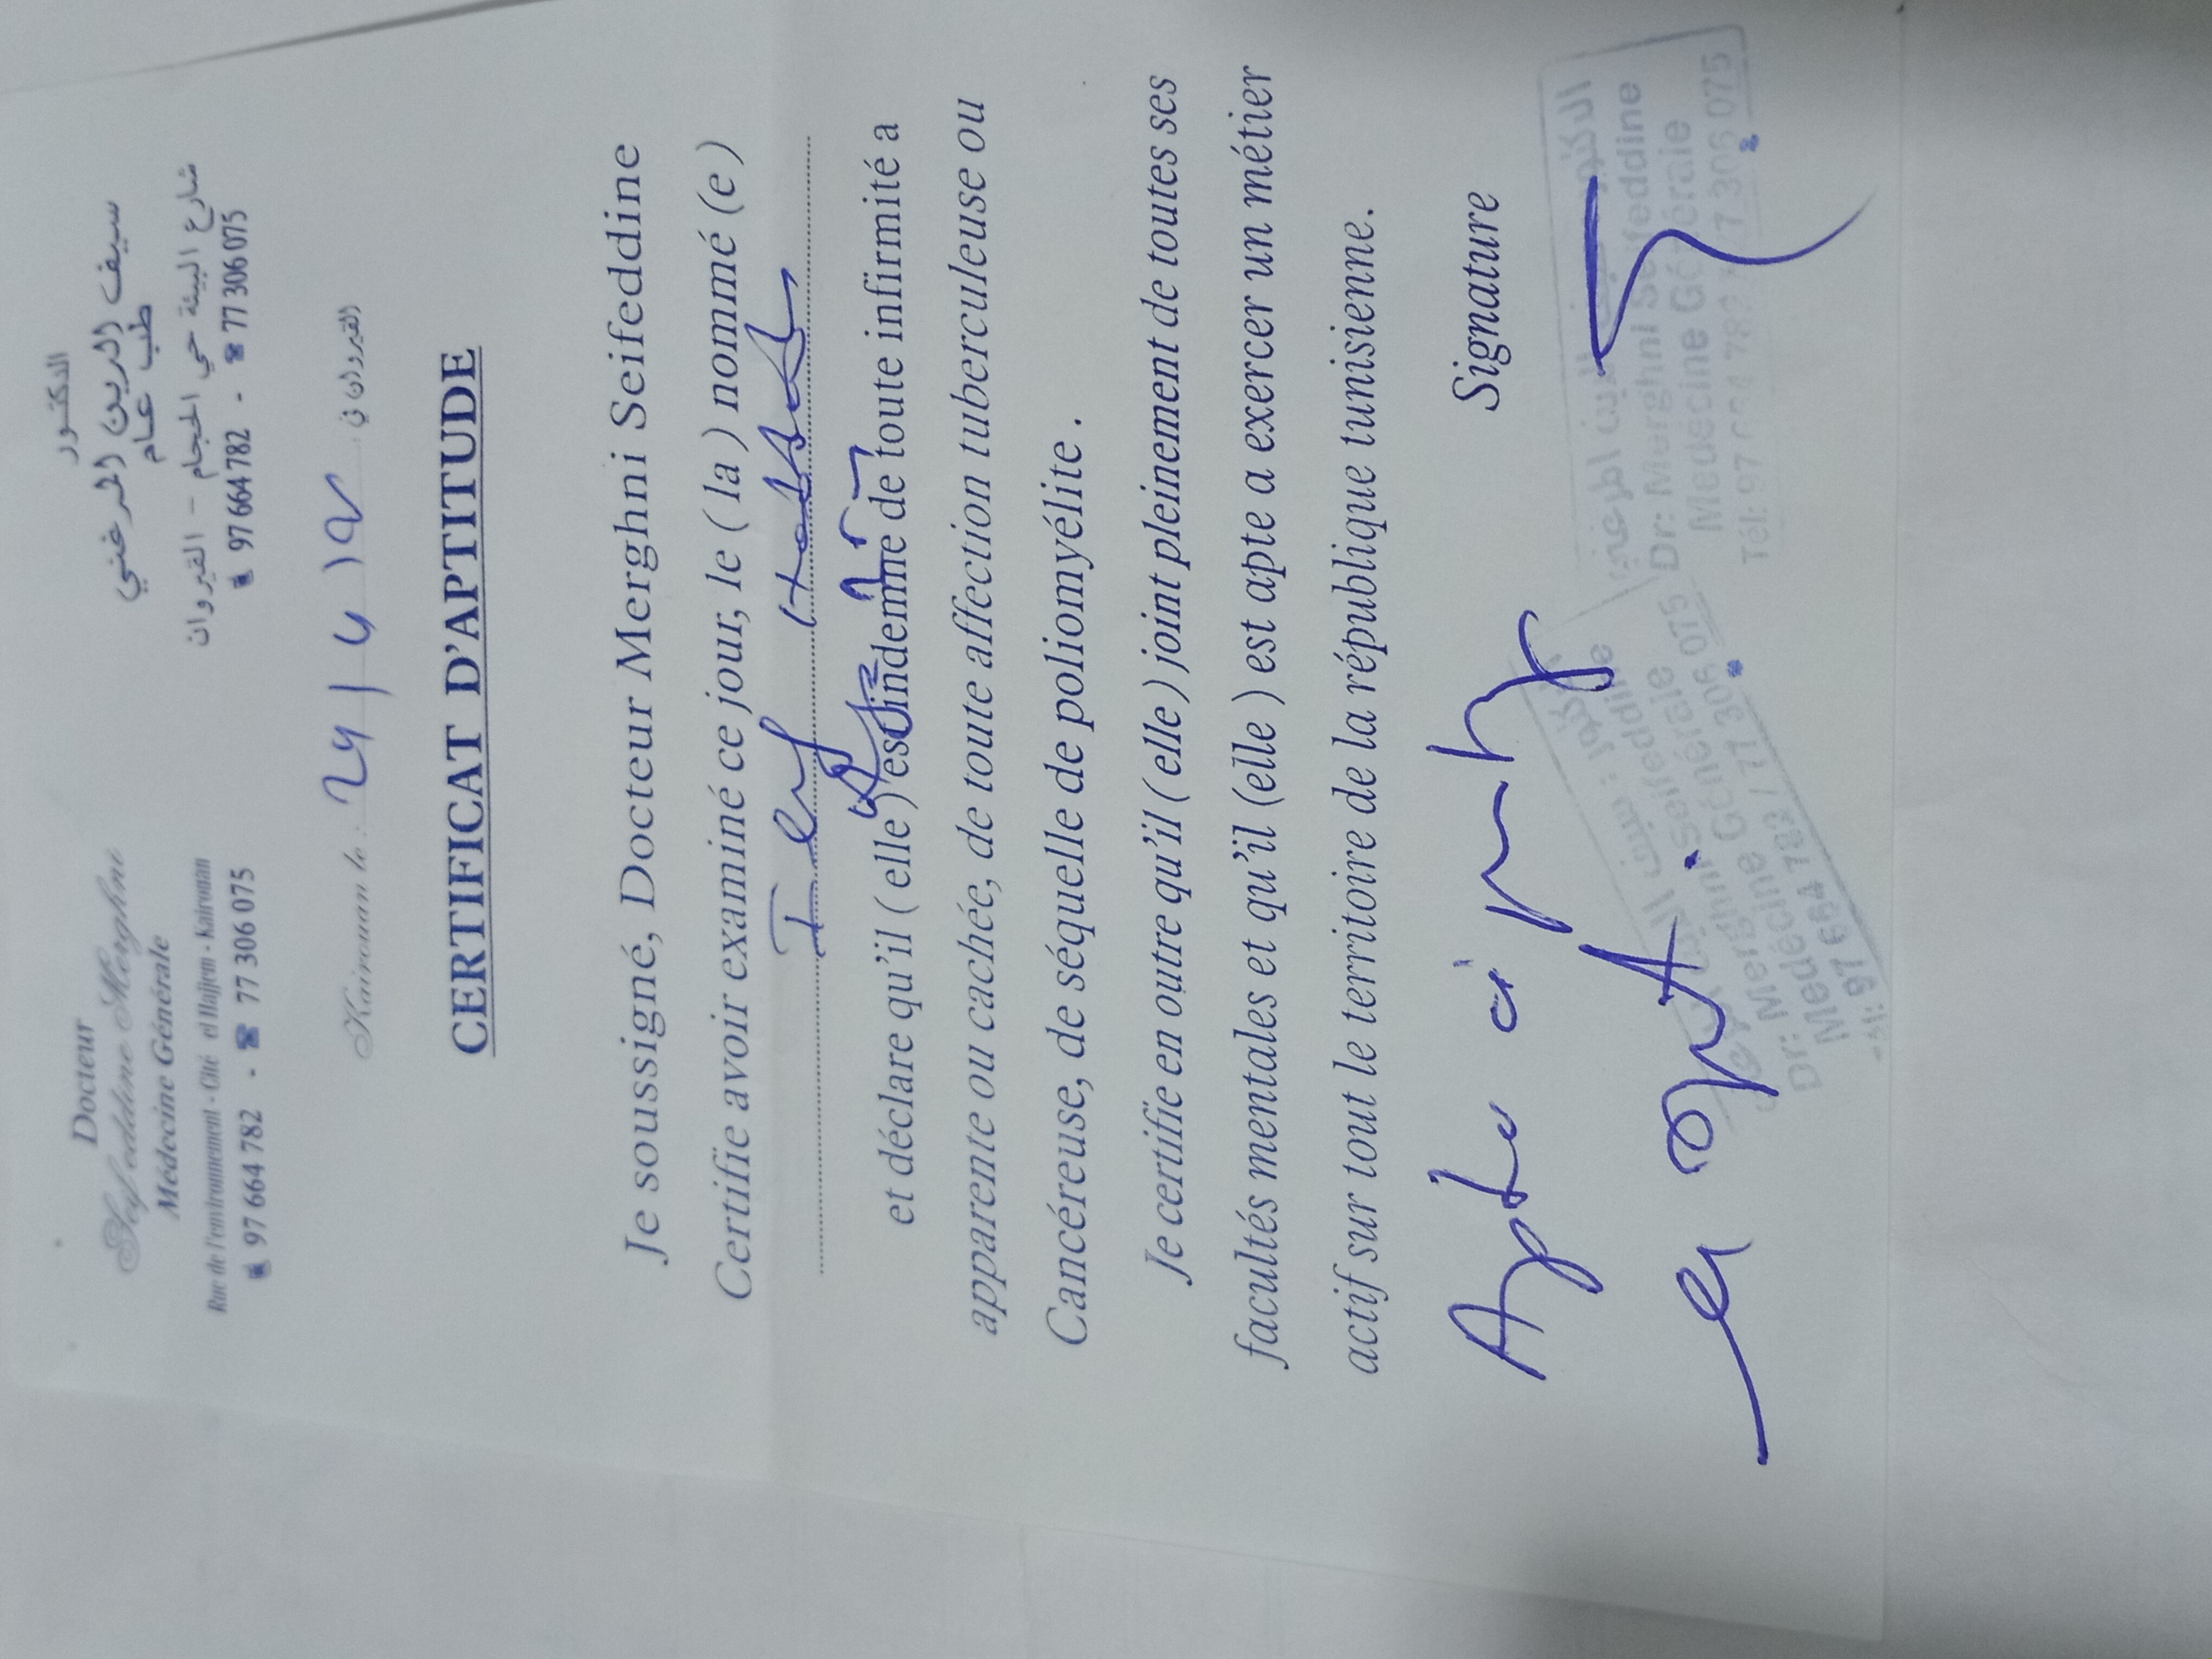 Docteur
Seifeddine Merghni
Médecine Générale
Rue de l'environnement - Cité el Hajjem - Kairouan
97 664 782 - 77 306 075
الدكتور
سيف الدين المرغني
طب عام
شارع البيئة حي الحجام - القيروان
97 664 782 - 77 306 075
Kairouan le : القيروان في
CERTIFICAT D'APTITUDE
Je soussigné, Docteur Merghni Seifeddine
Certifie avoir examiné ce jour, le ( la ) nommé (e )
et déclare qu'il ( elle ) est indemne de toute infirmité a
apparente ou cachée, de toute affection tuberculeuse ou
Cancéreuse, de séquelle de poliomyélite .
Je certifie en outre qu'il ( elle ) joint pleinement de toutes ses
facultés mentales et qu'il (elle ) est apte a exercer un métier
actif sur tout le territoire de la république tunisienne.
Signature
Apte à
Dr: Merghni Seifeddine
Médecine Générale
Tél: 97 664 782 / 77 306 075
Dr: Merghni Seifeddine
Médecine Générale
Tél: 97 664 782 / 77 306 075